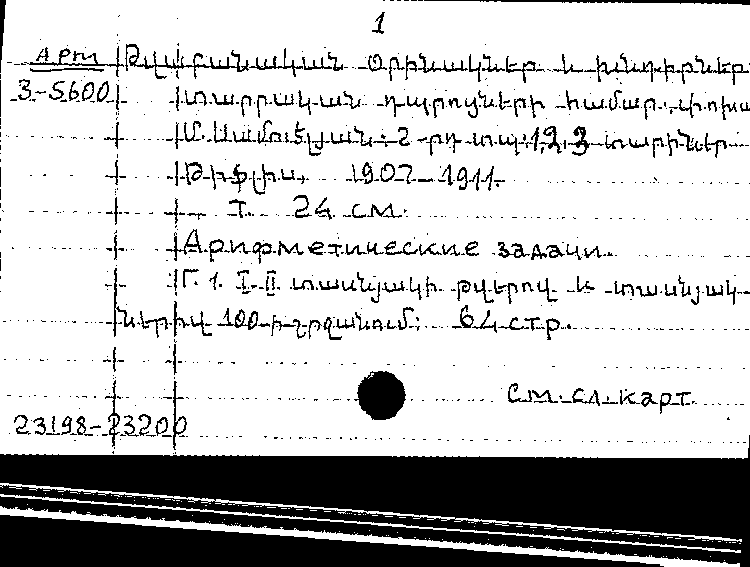 1
АРМ Թվաբանական օրինակներ և խնդիրներ
3-5600 տարրական դպրոցների համար. փոխա
Մ. Սամուէլյան: 2-րդ տպ. 1, 2, 3 տարիներ
Թիֆլիս, 1907-1911.
т. 24 см.
Арифметические задачи.
Г. 1. I-II տասնյակի թվերով և տասնյակ-
ներիվ 100-ի շրջանում: 64 стр.
См. сл. карт.
23198-23200